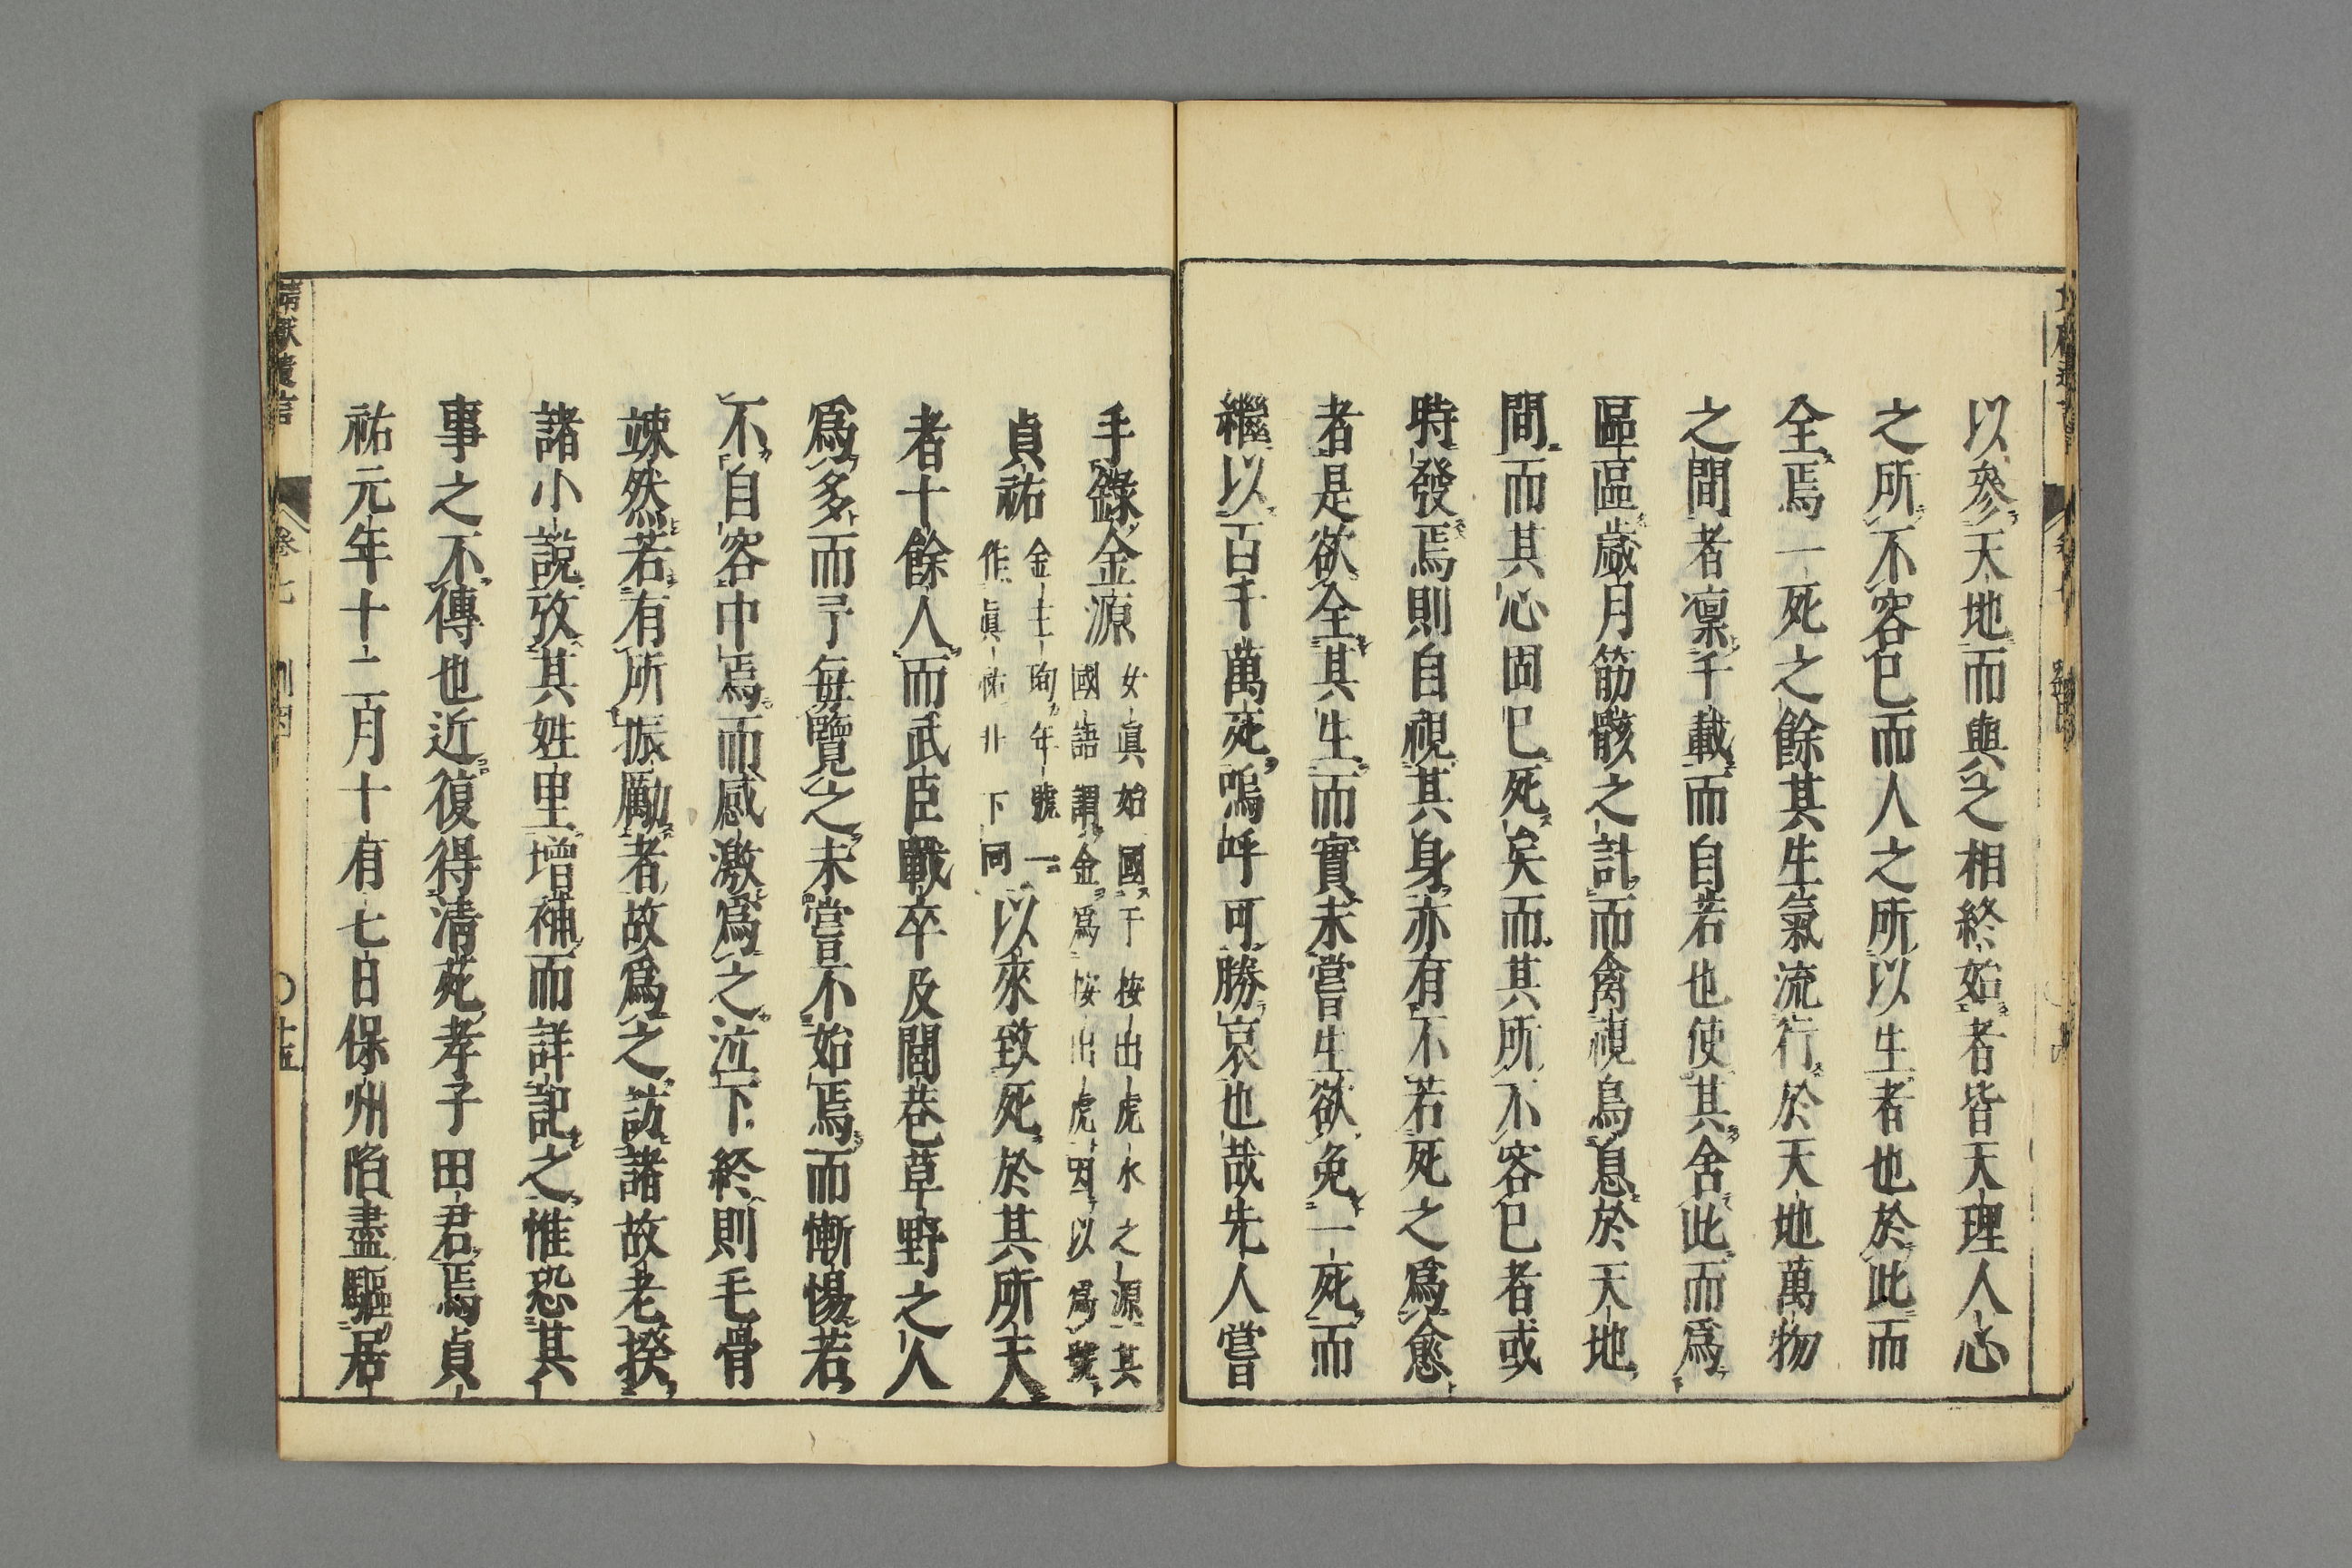 以參天地而與之相終始者皆天理人心
之所不容已而人之所以生者也於此而
全焉一死之餘其生氣流行於天地萬物
之間者凜千載而自若也使其舍此而爲
區區歲月筋骸之計而禽視鳥息於天地
間而其心固已死矣而其所不容已者或
時發焉則自視其身亦有不若死之爲愈
者是欲全其生而實未嘗生欲免一死而
繼以百千萬死嗚呼可勝哀也哉先人嘗
手錄金源
女眞始國于按出虎水之源其
國語謂金爲按出虎因以爲號
貞祐
金主珣年號一
作眞祐非下同
以來致死於其所天
者十餘人而武臣戰卒及閭巷草野之人
爲多而予每覽之未嘗不始焉而慚惕若
不自容中焉而感激爲之泣下終則毛骨
竦然若有所振勵者故爲之訪諸故老揆
諸小說攷其姓里增補而詳記之惟恐其
事之不傳也近復得清苑孝子田君焉貞
祐元年十二月十有七日保州陷盡驅居
靖獻遺言
卷七
劉因